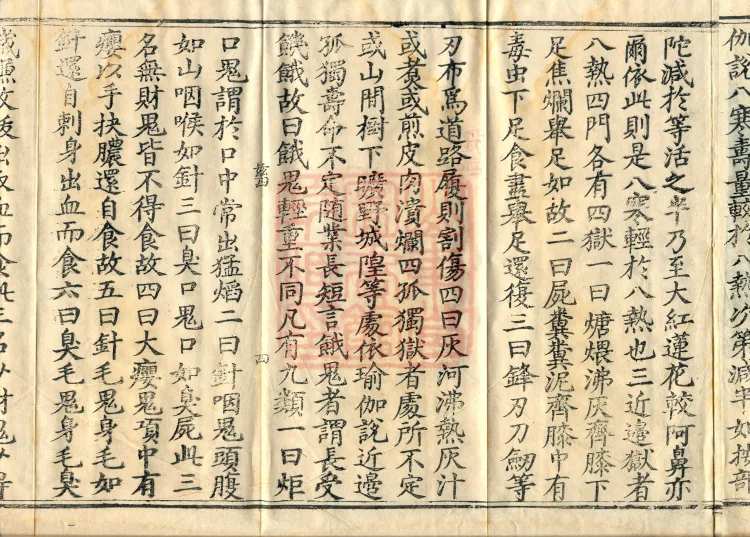 伽說八寒壽量較於八熱次第減半如按部
陀減於等活之半乃至大紅蓮花較阿鼻亦
爾依此則是八寒輕於八熱也三近邊獄者
八熱四門各有四獄一曰煻煨沸灰齊膝下
足焦爛舉足如故二曰屍糞糞泥齊膝中有
毒虫下足食盡舉足還復三曰鋒刃刀劒等
刃布爲道路履則割傷四曰灰河沸熱灰汁
或煮或煎皮肉潰爛四孤獨獄者處所不定
或山間樹下曠野城隍等處依瑜伽說近邊
孤獨壽命不定隨業長短言餓鬼者謂長受
饑餓故曰餓鬼輕重不同凡有九類一曰炬
四
口鬼謂於口中常出猛焰二曰針咽鬼頭腹
如山咽喉如針三曰臭口鬼口如臭屍此三
名無財鬼皆不得食故四曰大癭鬼項中有
癭以手抉膿還自食故五曰針毛鬼身毛如
針還自刺身出血而食六曰臭毛鬼身毛臭